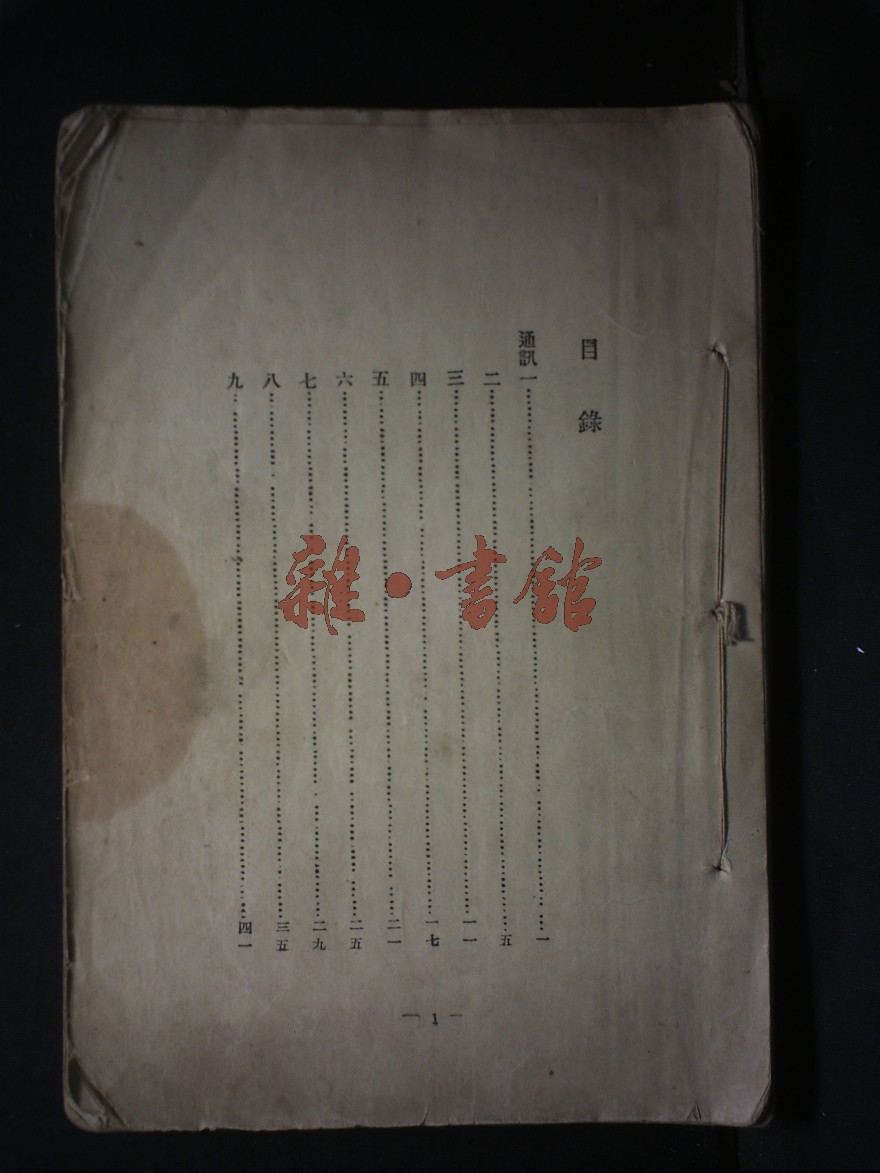 目錄
通訊一……一
二……五
三……一一
四……一七
五……二一
六……二五
七……二九
八……三五
九……四一
— 1 —
雜·書館